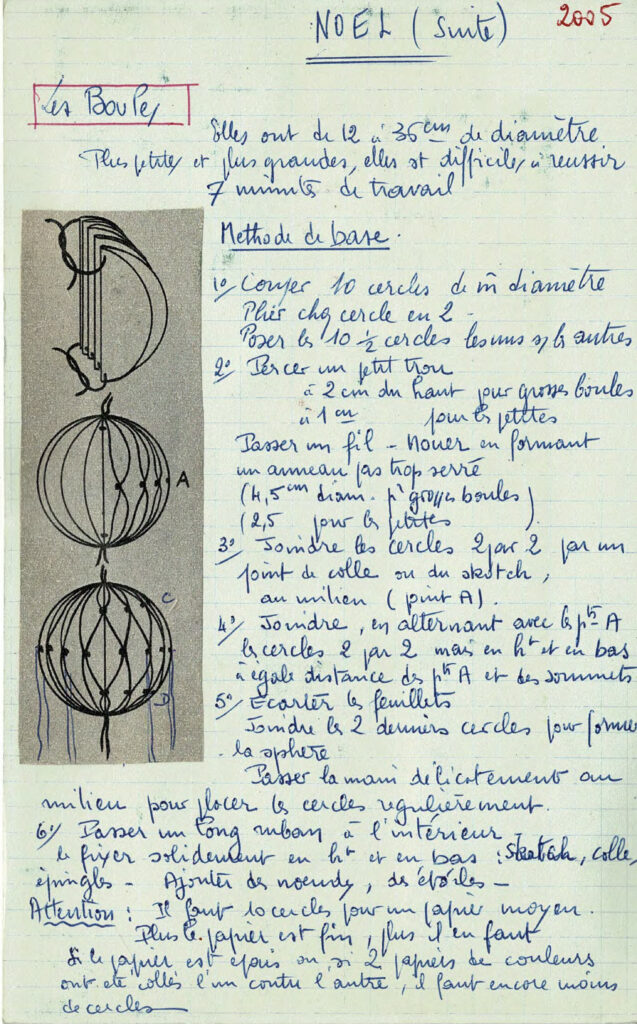 NOEL (Suite)
2005
Les Boules
Elles ont de 12 à 36 cm de diamètre
Plus petites et plus grandes, elles st difficiles à réussir
7 minutes de travail
Methode de base.
1°/ Couper 10 cercles de m̂ diamètre
Plier chq cercle en 2 -
Poser les 10 ½ cercles les uns s/ les autres
2°/ Percer un petit trou
à 2 cm du haut pour grosses boules
à 1 cm pour les petites
Passer un fil - Nouer en formant
un anneau pas trop serré
(4,5 cm diam. pr grosses boules)
(2,5 pour les petites).
3°/ Joindre les cercles 2 par 2 par un
point de colle ou du skotch,
au milieu (point A).
4°/ Joindre, en alternant avec les pts A
les cercles 2 par 2 mais en ht et en bas
à égale distance des pts A et des sommets
5°/ Ecarter les feuillets
Joindre les 2 derniers cercles pour former
la sphère
Passer la main délicatement au
milieu pour placer les cercles regulièrement.
6°/ Passer un long ruban à l'intérieur
le fixer solidement en ht et en bas : Skotch, colle,
épingles - Ajouter des noeuds, des étoiles -
Attention : Il faut 10 cercles pour un papier moyen.
Plus le papier est fin, plus il en faut
Si le papier est épais ou si 2 papiers de couleurs
ont été collés l'un contre l'autre, il faut encore moins
de cercles
A
C
D